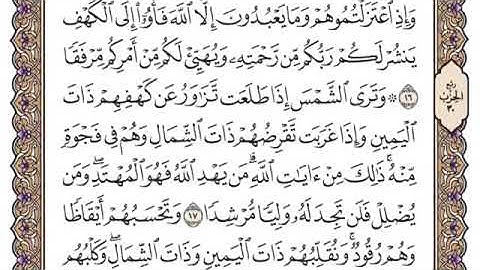 وَإِذِ ٱعْتَزَلْتُمُوهُمْ وَمَا يَعْبُدُونَ إِلَّا ٱللَّهَ فَأْوُۥٓا۟ إِلَى ٱلْكَهْفِ
يَنشُرْ لَكُمْ رَبُّكُم مِّن رَّحْمَتِهِۦ وَيُهَيِّئْ لَكُم مِّنْ أَمْرِكُم مِّرْفَقًا
١٦ ۞ وَتَرَى ٱلشَّمْسَ إِذَا طَلَعَت تَّزَٰوَرُ عَن كَهْفِهِمْ ذَاتَ
ٱلْيَمِينِ وَإِذَا غَرَبَت تَّقْرِضُهُمْ ذَاتَ ٱلشِّمَالِ وَهُمْ فِى فَجْوَةٍ
مِّنْهُ ۚ ذَٰلِكَ مِنْ ءَايَٰتِ ٱللَّهِ ۗ مَن يَهْدِ ٱللَّهُ فَهُوَ ٱلْمُهْتَدِ ۖ وَمَن
يُضْلِلْ فَلَن تَجِدَ لَهُۥ وَلِيًّا مُّرْشِدًا ١٧ وَتَحْسَبُهُمْ أَيْقَاظًا
وَهُمْ رُقُودٌ ۚ وَنُقَلِّبُهُمْ ذَاتَ ٱلْيَمِينِ وَذَاتَ ٱلشِّمَالِ ۖ وَكَلْبُهُم
ربع
الحزب
٣٠